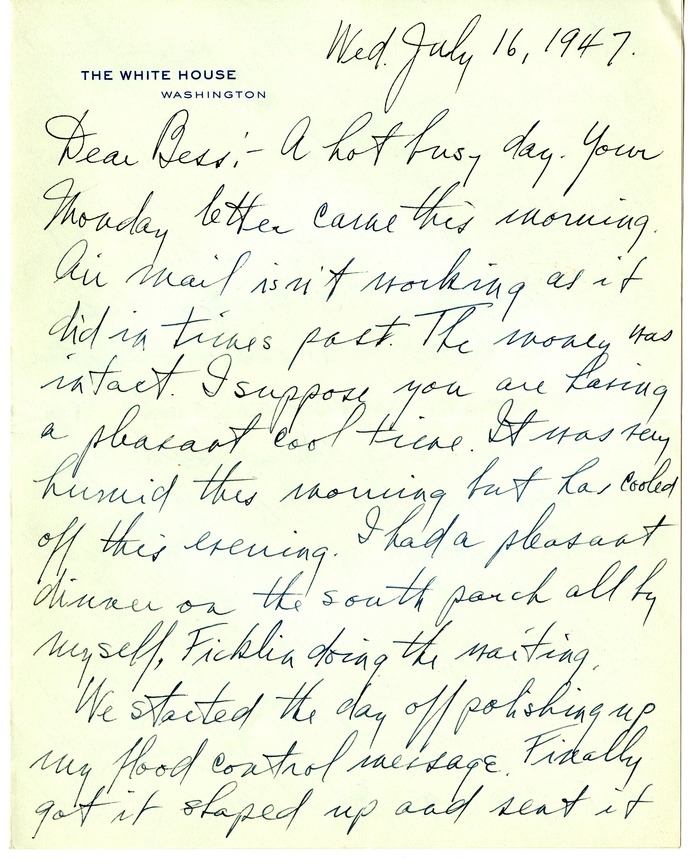 Wed. July 16, 1947.
THE WHITE HOUSE
WASHINGTON
Dear Bess:- A hot busy day. Your
Monday letter came this morning.
Air mail isn't working as it
did in times past. The money was
intact. I suppose you are having
a pleasant cool time. It was very
humid this morning but has cooled
off this evening. I had a pleasant
dinner on the south porch all by
myself, Ficklin doing the waiting.
We started the day off polishing up
my flood control message. Finally
got it shaped up and sent it